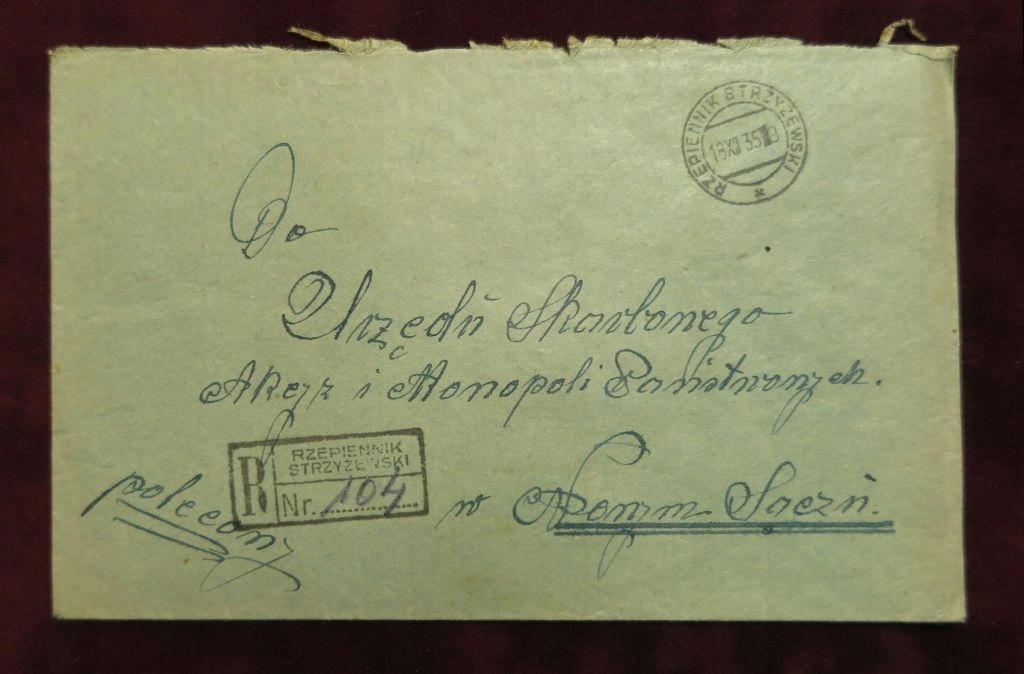 RZEPIENNIK STRZYŻEWSKI
18 XII 35
Do
Urzędu Skarbowego
Akcyz i Monopoli Państwowych.
RZEPIENNIK
STRZYŻEWSKI
R Nr. 104
polecony
w Nowym Sączu.